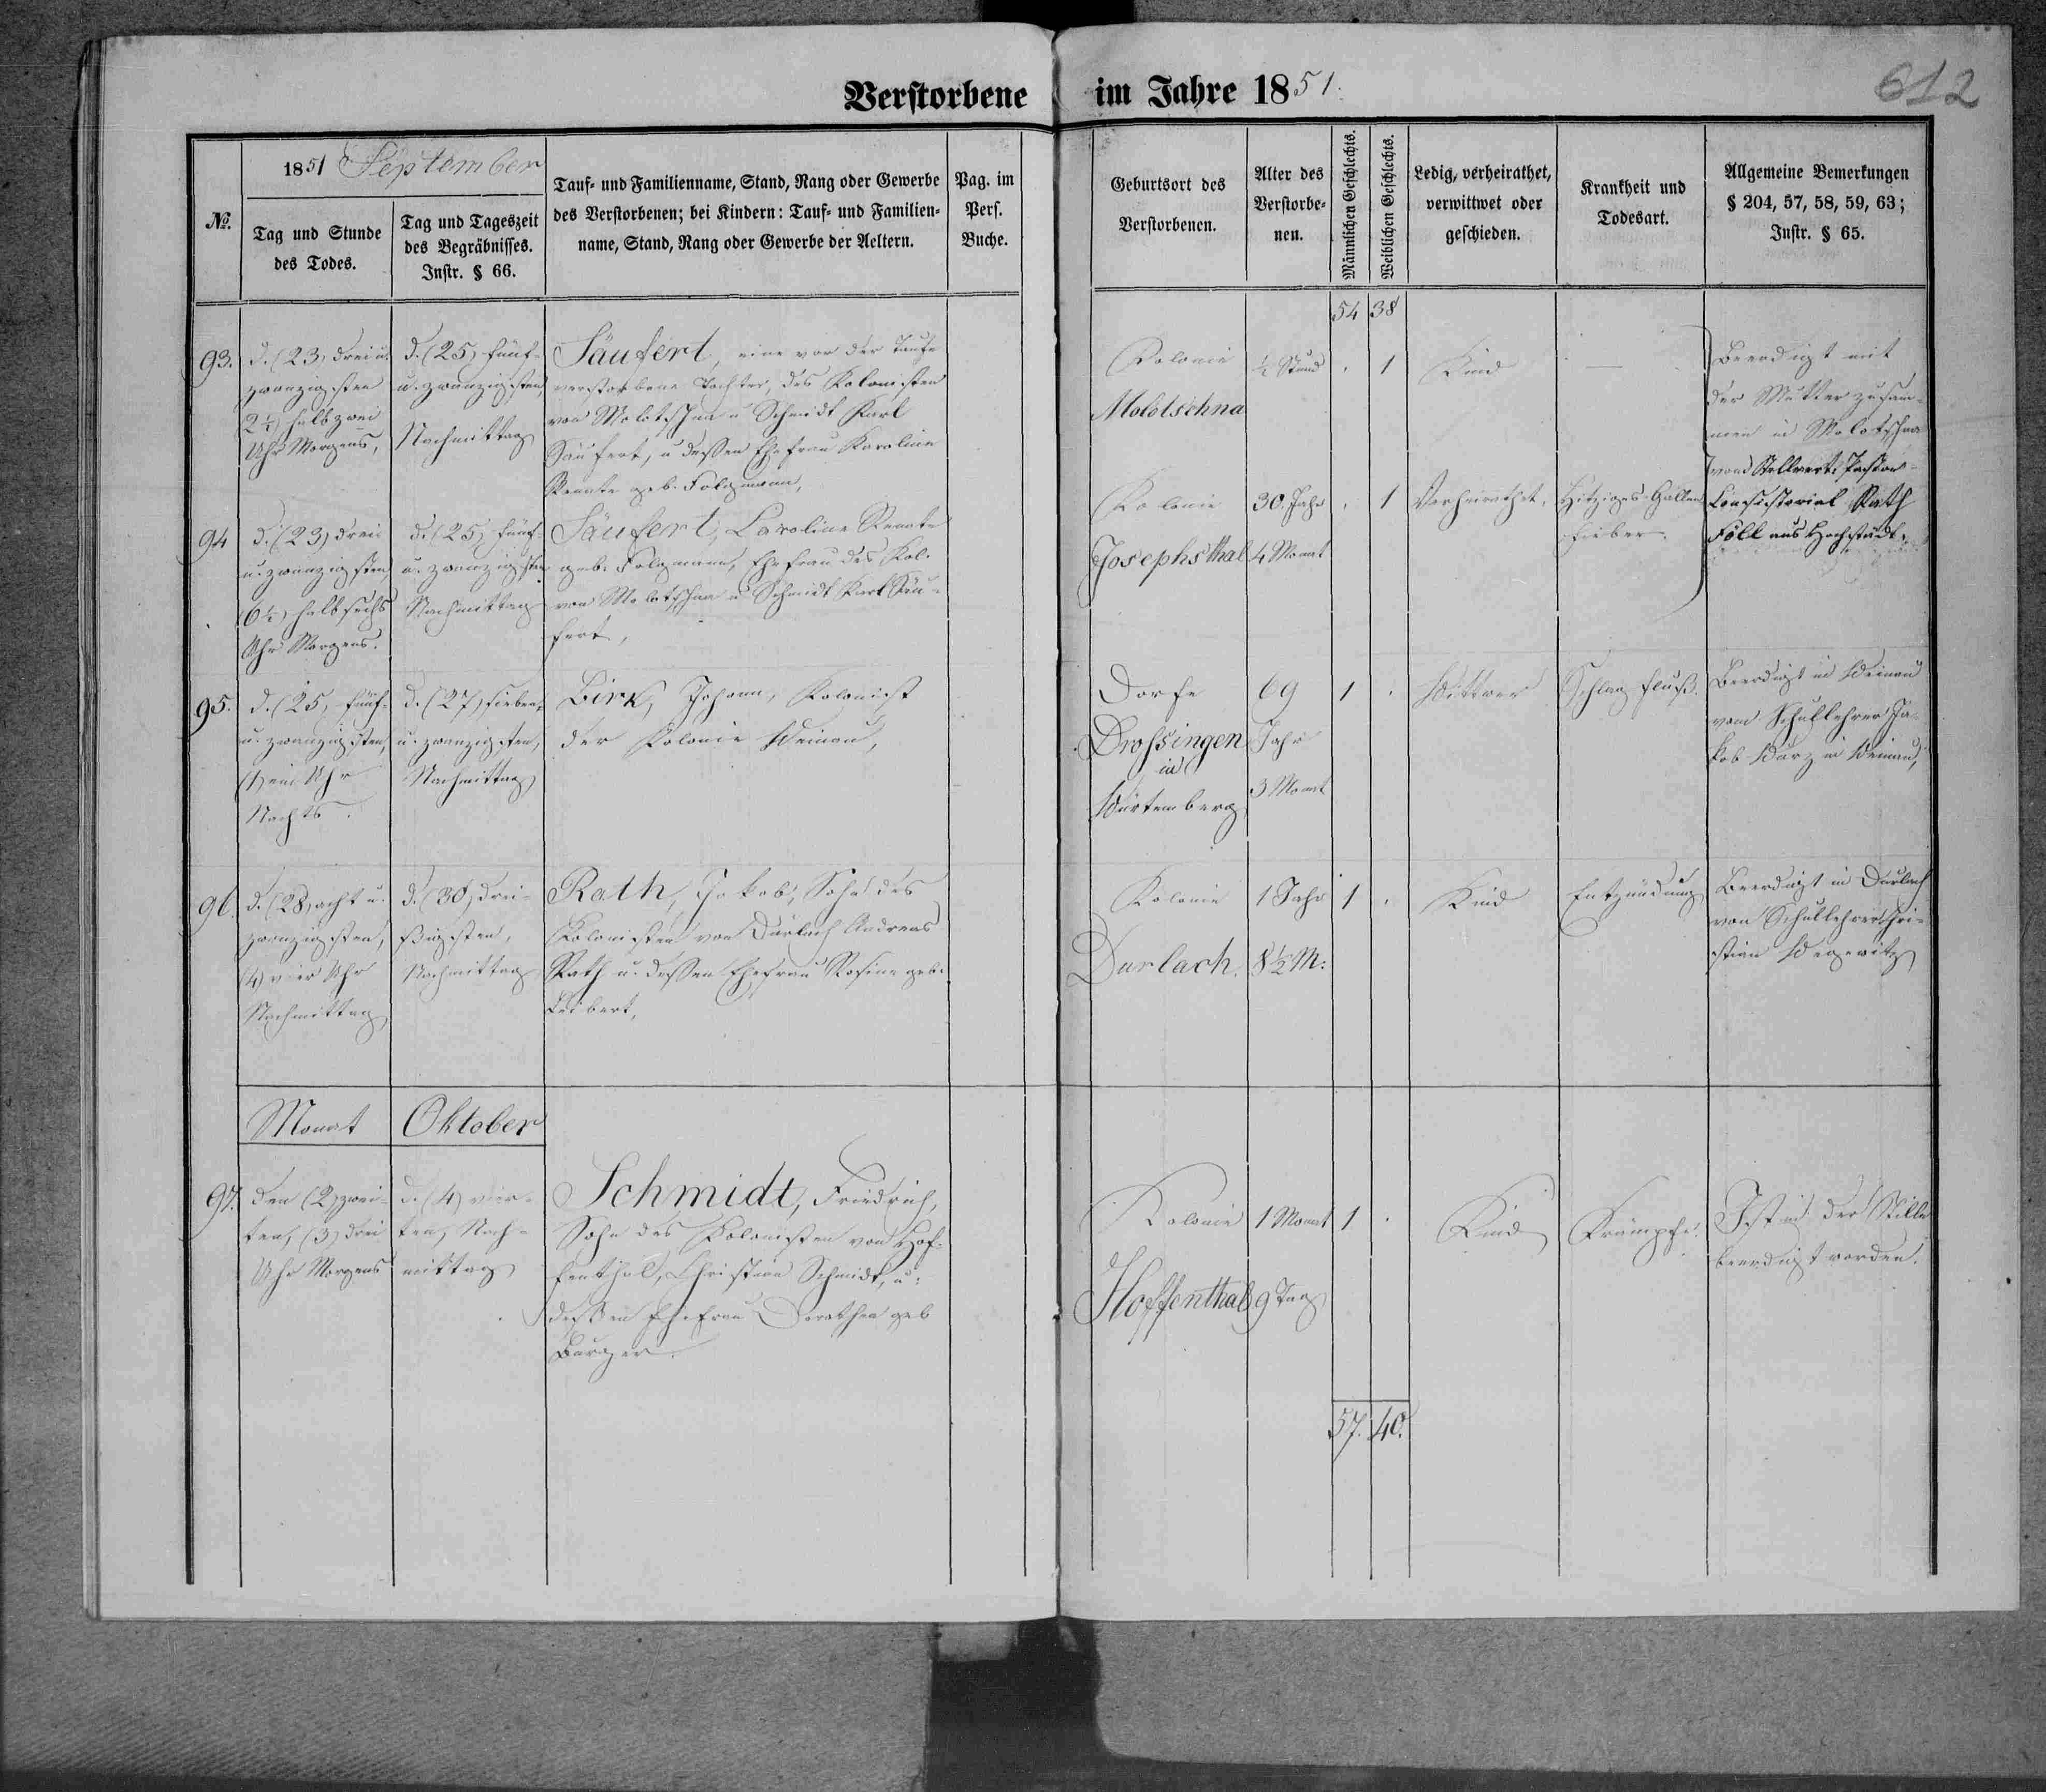 Verstorbene im Jahre 1851.
612
No.
1851 September
Tag und Stunde
des Todes.
Tag und Tageszeit
des Begräbnisses.
Instr. § 66.
Tauf- und Familienname, Stand, Rang oder Gewerbe
des Verstorbenen; bei Kindern: Tauf- und Familien-
name, Stand, Rang oder Gewerbe der Aeltern.
Pag. im
Pers.
Buche.
Geburtsort des
Verstorbenen.
Alter des
Verstorbe-
nen.
Männlichen Geschlechts.
Weiblichen Geschlechts.
Ledig, verheirathet,
verwittwet oder
geschieden.
Krankheit und
Todesart.
Allgemeine Bemerkungen
§ 204, 57, 58, 59, 63;
Instr. § 65.
54 38
93.
d. (23) drei u.
zwanzigsten
halb zwei
Uhr Morgens,
d. (25) fünf-
u. zwanzigsten,
Nachmittag
Säufert, eine vor der Taufe
verstorbene Tochter, des Kolonisten
von Molotschna u Schmidt Karl
Säufert, u dessen Ehefrau Karoline
Renate geb. Folgmann,
Kolonie
Molotschna
Stund
. 1
Kind
—
Beerdigt mit
der Mutter zusam-
men in Molotschna
vom Stellvert. Pastor
Consistorial Rath
Föll aus Hochstädt.
94
d. (23) drei-
u. zwanzigsten,
halb sechs
Uhr Morgens.
d. (25) fünf-
u. zwanzigsten
Nachmittag
Säufert, Caroline Renate
geb. Folgmann, Ehefrau des Kol.
von Molotschna u Schmidt Karl Säu-
fert,
Kolonie
Josephsthal
30. Jahr
4 Monat
. 1
Verheirathet.
Hitziges Gallen
fieber.
95.
d. (25) fünf-
u. zwanzigsten,
(1) ein Uhr
Nachts.
d. (27) sieben
u. zwanzigsten,
Nachmittag
Birk, Johann, Kolonist
der Kolonie Weinau,
Dorfe
Drossingen
in
Würtemberg
69
Jahr
3 Monat
1 .
Wittwer
Schlagfluß.
Beerdigt in Weinau
vom Schullehrer Ja-
kob Kurz in Weinau,
96.
d. (28) acht u.
zwanzigsten,
(4) vier Uhr
Nachmittag
d. (30) drei-
ßigsten,
Nachmittag
Rath, Jakob, Sohn des
Kolonisten von Durlach Andreas
Rath u. dessen Ehefrau Rosine geb.
Leibert,
Kolonie
Durlach.
1 Jahr
8½ M:
1 .
Kind
Entzündung
Beerdigt in Durlach
von Schullehrer Chri-
stian Wegewitz
Monat Oktober
97.
den (2) zwei-
ten, (3) drei
Uhr Morgens
d. (4) vier-
ten, Nach-
mittag
Schmidt, Friedrich,
Sohn des Kolonisten von Hof-
fenthal, Christian Schmidt, u:
dessen Ehefrau Dorothea geb
Burger.
Kolonie
Hoffenthal
1 Monat
9 Tag
1 .
Kind
Krämpfe.
Ist in der Stille
beerdigt worden.
57. 40.